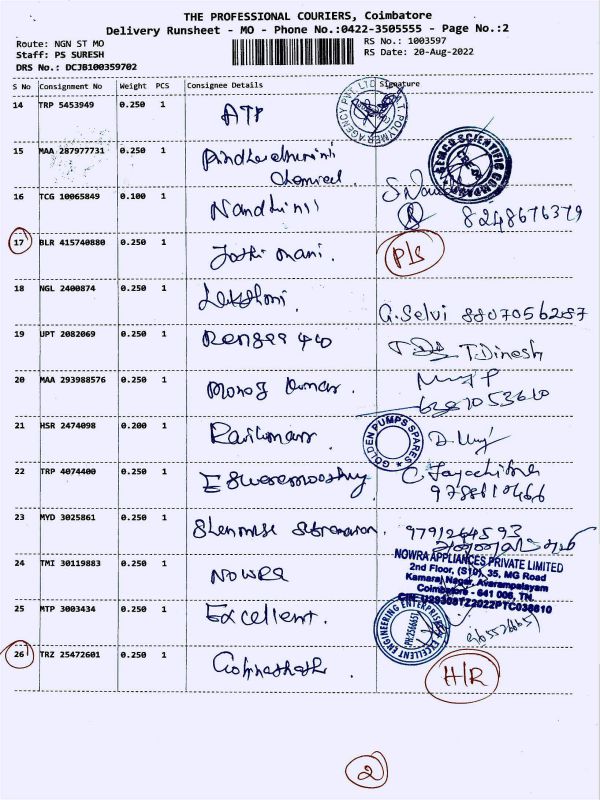 THE PROFESSIONAL COURIERS, Coimbatore
Delivery Runsheet - MO - Phone No.:0422-3505555 - Page No.:2
Route: NGN ST MO
RS No.: 1003597
Staff: PS SURESH
RS Date: 20-Aug-2022
DRS No.: DCJB100359702
S No Consignment No Weight PCS Consignee Details Signature
14 TRP 5453949 0.250 1 ATP
A.T. POLYMER AGENCY PVT. LTD
15 MAA 287977731 0.250 1
Chemical.
GEMCO SCIENTIFIC COMPANY
16 TCG 10065849 0.100 1 Nandhini
8248676379
17 BLR 415740880 0.250 1 Jothi mani. P/S
18 NGL 2400874 0.250 1 Lakshmi. G. Selvi 8807056287
19 UPT 2082069 0.250 1 T. Dinesh
20 MAA 293988576 0.250 1 Manoj Kumar.
21 HSR 2474098 0.200 1 Rajkumar
GOLDEN PUMPS SPARES
22 TRP 4074400 0.250 1 Eswaramoorthy C. Jayachitra
9788610466
23 MYD 3025861 0.250 1 9791264593
24 TMI 30119883 0.250 1 NOWRA
NOWRA APPLIANCES PRIVATE LIMITED
2nd Floor, (S10), 35, MG Road
Kamaraj Nagar, Avarampalayam
Coimbatore - 641 006, TN.
CIN-U29308TZ2022PTC038610
25 MTP 3003434 0.250 1 Excellent.
EXCELLENT ENGINEERING ENTERPRISES
PH:2566651
26 TRZ 25472601 0.250 1 Gopinath H/R
2